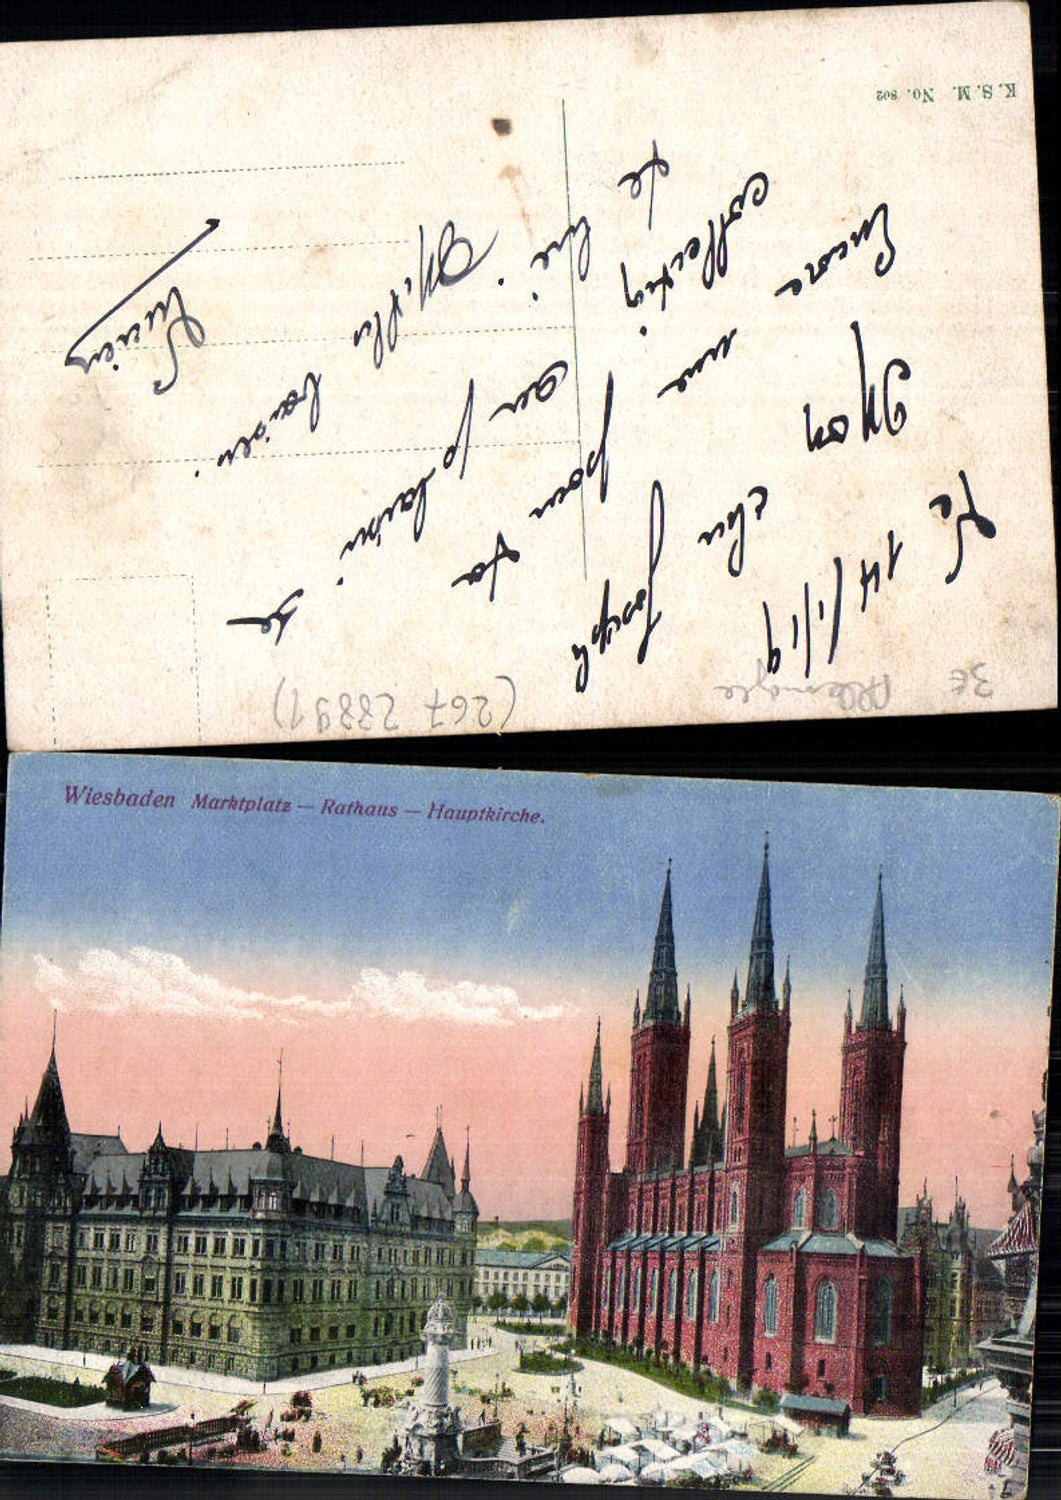 K.S.M. No. 802
3€
Allemagne
(267 28891)
Le 14/1/19
Mon cher Joseph
Encore une pour ta
collection.
Je au plaisir de
te lire. Mille baisers.
Lucien
Wiesbaden Marktplatz — Rathaus — Hauptkirche.